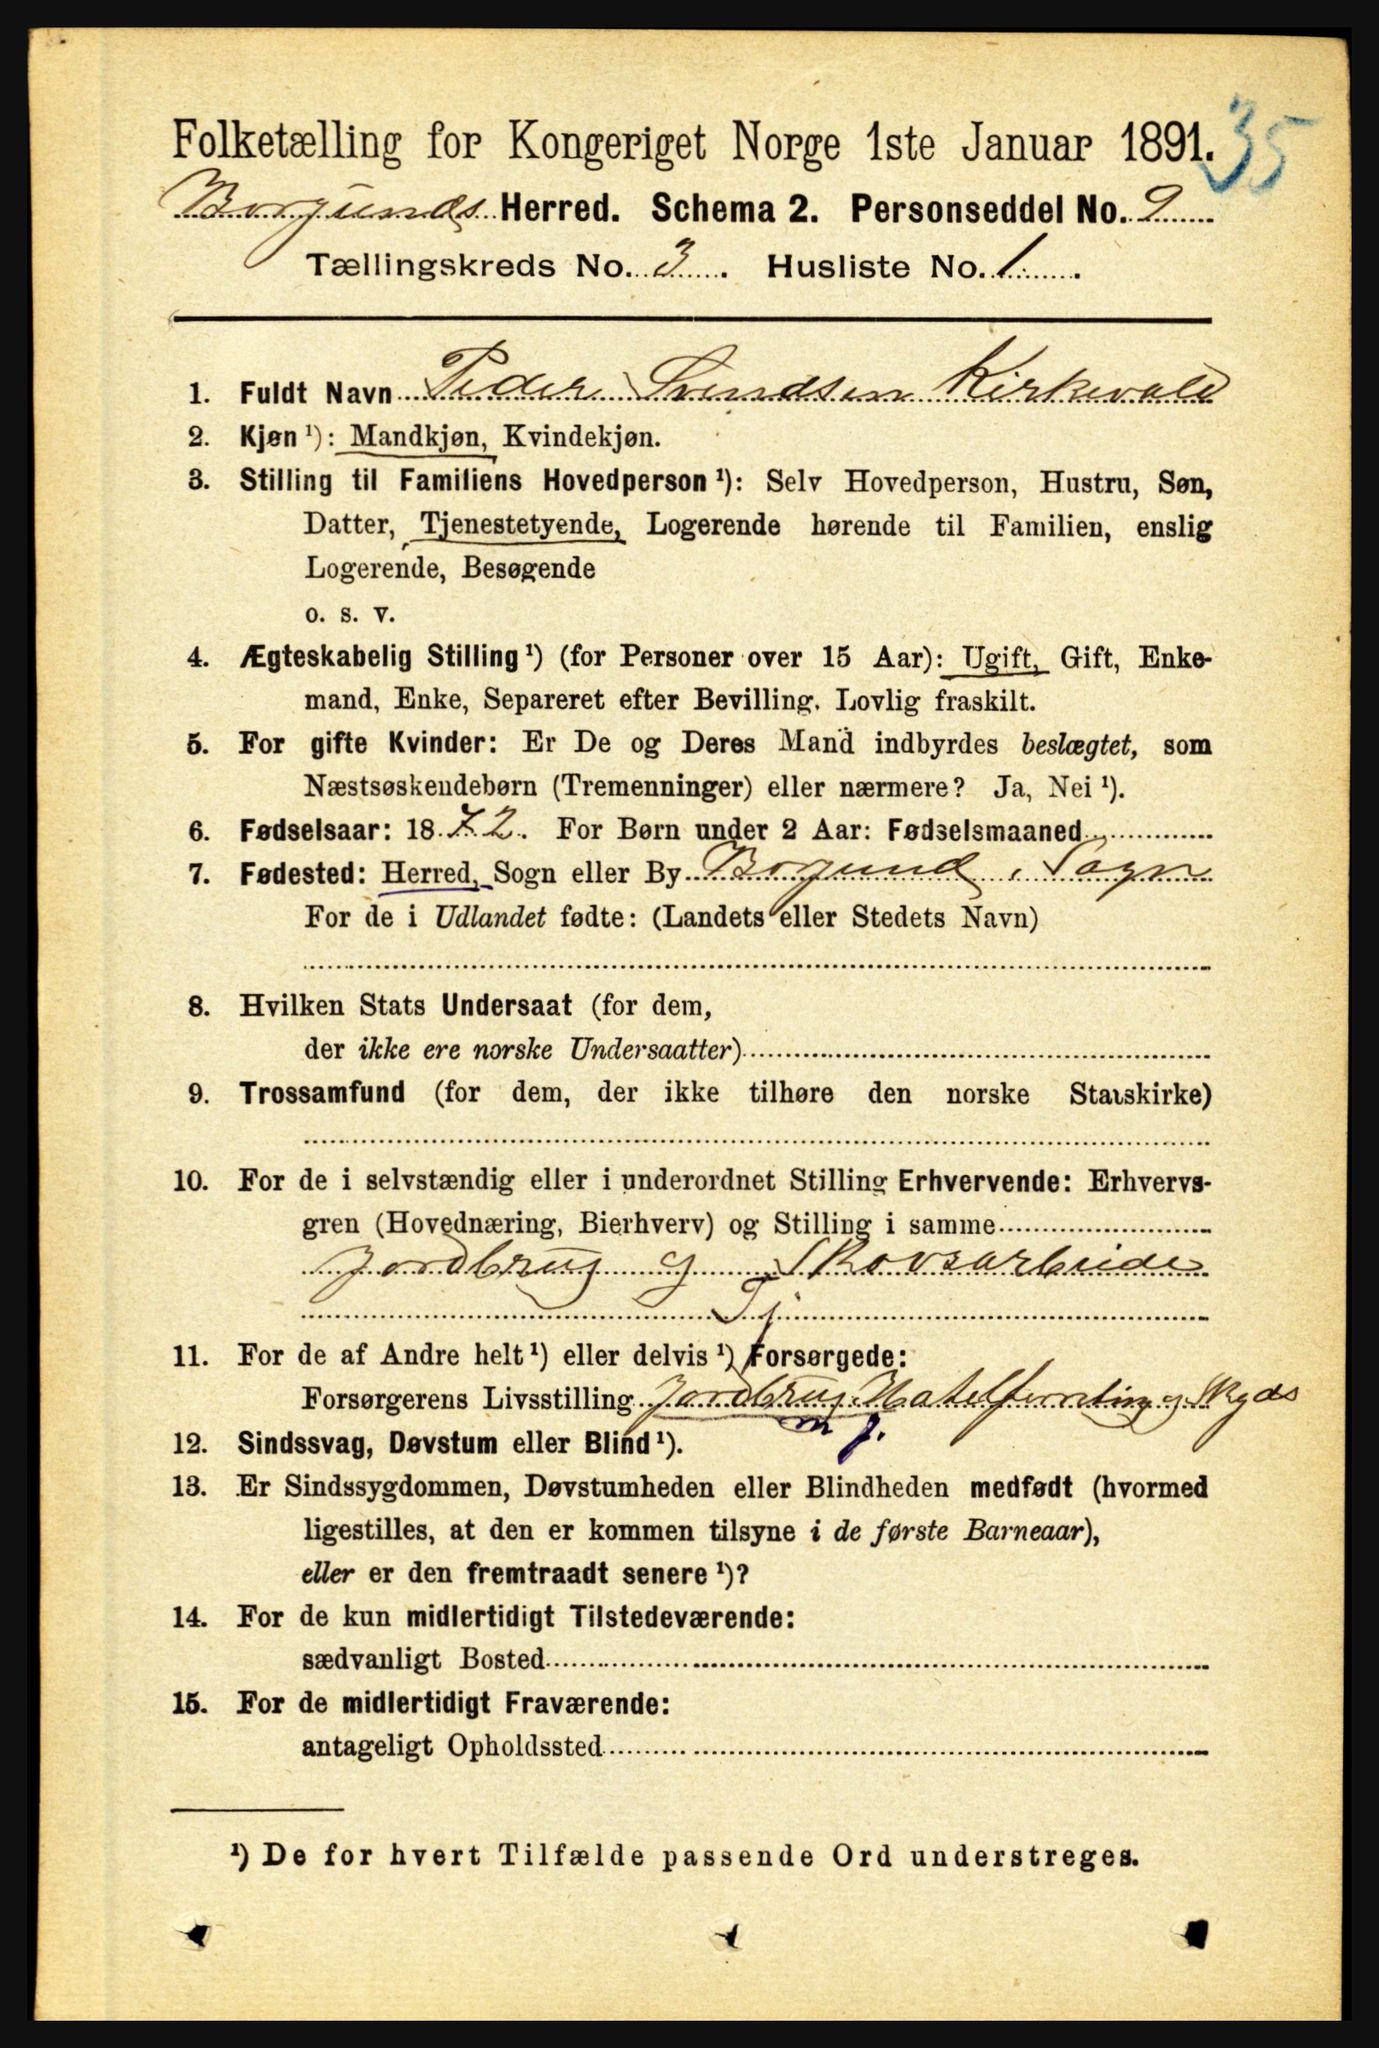 35
Folketælling for Kongeriget Norge 1ste Januar 1891.
Borgunds Herred. Schema 2. Personseddel No. 9
Tællingskreds No. 3. Husliste No. 1.
1. Fuldt Navn Peder Svendsen Kirkevold
2. Kjøn ¹): Mandkjøn, Kvindekjøn.
3. Stilling til Familiens Hovedperson ¹): Selv Hovedperson, Hustru, Søn,
Datter, Tjenestetyende, Logerende hørende til Familien, enslig
Logerende, Besøgende
o. s. v.
4. Ægteskabelig Stilling ¹) (for Personer over 15 Aar): Ugift, Gift, Enke-
mand, Enke, Separeret efter Bevilling. Lovlig fraskilt.
5. For gifte Kvinder: Er De og Deres Mand indbyrdes beslægtet, som
Næstsøskendebørn (Tremenninger) eller nærmere? Ja, Nei ¹).
6. Fødselsaar: 1872. For Børn under 2 Aar: Fødselsmaaned
7. Fødested: Herred, Sogn eller By Borgund i Sogn
For de i Udlandet fødte: (Landets eller Stedets Navn)
8. Hvilken Stats Undersaat (for dem,
der ikke ere norske Undersaatter)
9. Trossamfund (for dem, der ikke tilhøre den norske Statskirke)
10. For de i selvstændig eller i underordnet Stilling Erhvervende: Erhvervs-
gren (Hovednæring, Bierhverv) og Stilling i samme
Jordbrug og Skovsarbeide
Tj
11. For de af Andre helt ¹) eller delvis ¹) Forsørgede:
Forsørgerens Livsstilling Jordbrug Skyds
m f.
12. Sindssvag, Døvstum eller Blind ¹).
13. Er Sindssygdommen, Døvstumheden eller Blindheden medfødt (hvormed
ligestilles, at den er kommen tilsyne i de første Barneaar),
eller er den fremtraadt senere ¹)?
14. For de kun midlertidigt Tilstedeværende:
sædvanligt Bosted
15. For de midlertidigt Fraværende:
antageligt Opholdssted
¹) De for hvert Tilfælde passende Ord understreges.